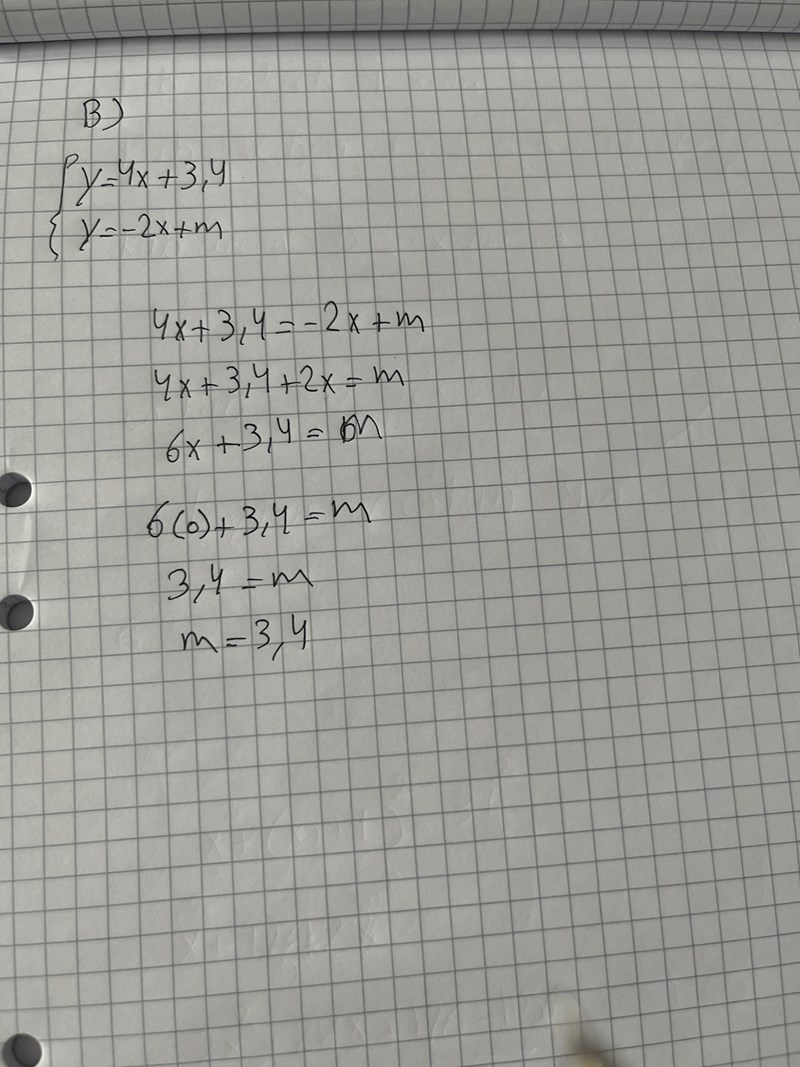 B)
y=4x+3,4
y=-2x+m
4x+3,4=-2x+m
4x+3,4+2x=m
6x+3,4=m
6(0)+3,4=m
3,4=m
m=3,4